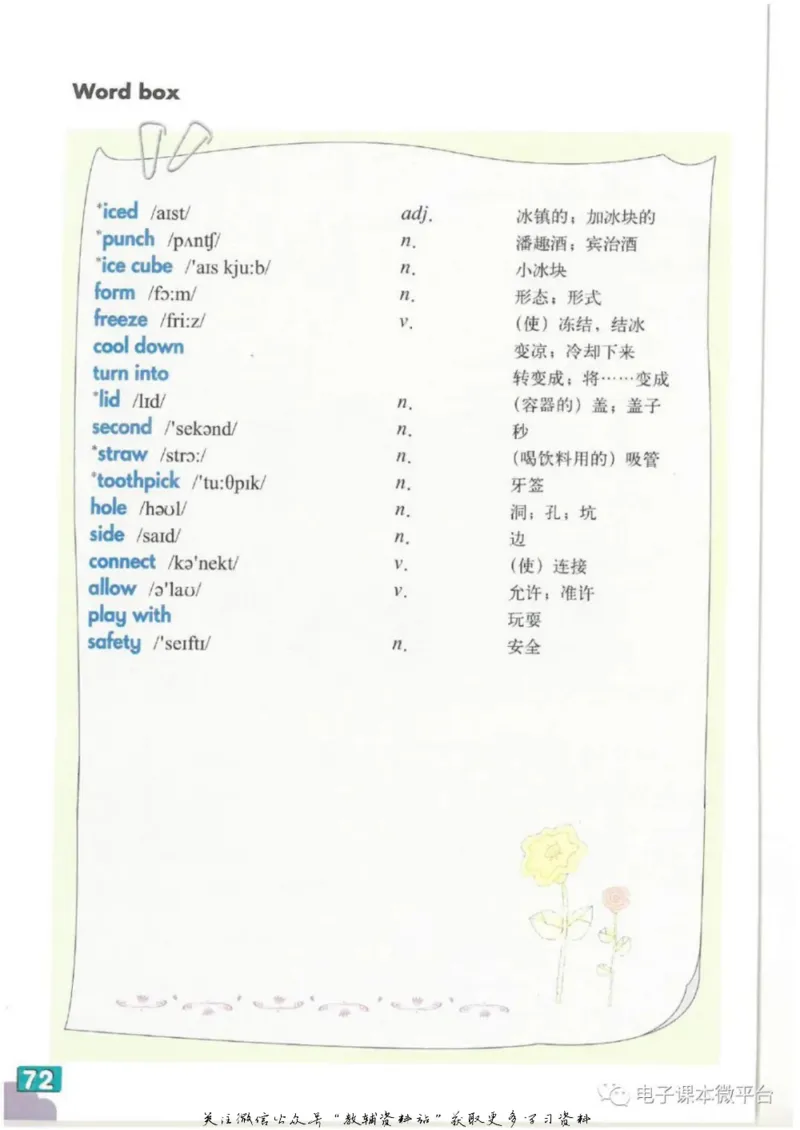 Word box
*iced /aɪst/ adj. 冰镇的；加冰块的
*punch /pʌntʃ/ n. 潘趣酒；宾治酒
*ice cube /'aɪs kju:b/ n. 小冰块
form /fɔ:m/ n. 形态；形式
freeze /fri:z/ v. (使) 冻结，结冰
cool down 变凉；冷却下来
turn into 转变成；将……变成
*lid /lɪd/ n. (容器的) 盖；盖子
second /'sekənd/ n. 秒
*straw /strɔ:/ n. (喝饮料用的) 吸管
*toothpick /'tu:θpɪk/ n. 牙签
hole /həʊl/ n. 洞；孔；坑
side /saɪd/ n. 边
connect /kə'nekt/ v. (使) 连接
allow /ə'laʊ/ v. 允许；准许
play with 玩耍
safety /'seɪftɪ/ n. 安全
72
电子课本微平台
关注微信公众号"教辅资料站"获取更多学习资料